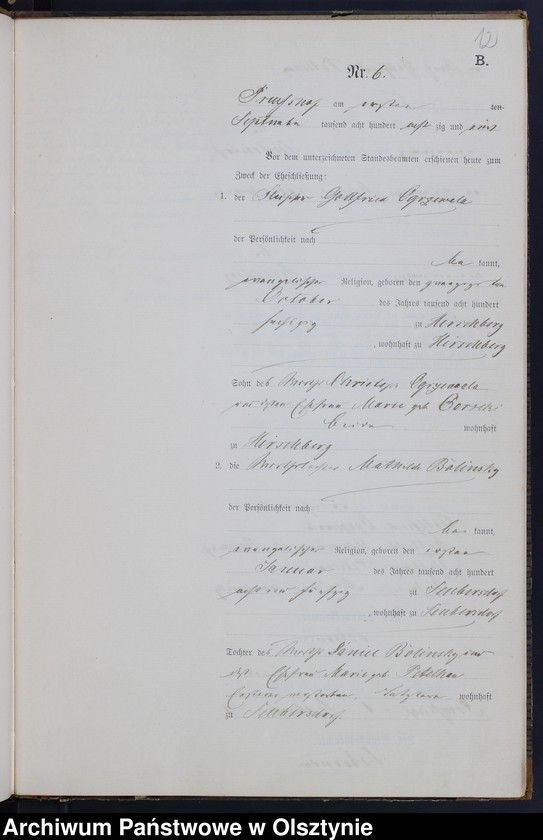 12
B.
Nr. 6.
am ersten ten
September tausend acht hundert acht zig und eins
Vor dem unterzeichneten Standesbeamten erschienen heute zum
Zweck der Eheschließung:
1. der Gottfried Ogrzewala
der Persönlichkeit nach
be kannt,
evangelischer Religion, geboren den
October des Jahres tausend acht hundert
sechszig zu Hirschberg
, wohnhaft zu Hirschberg
Sohn des Christoph Ogrzewala
und dessen Ehefrau Marie geb
beide wohnhaft
zu Hirschberg
2. die Mathilde Bolinsky
der Persönlichkeit nach
be kannt,
evangelischer Religion, geboren den ersten
Januar des Jahres tausend acht hundert
acht und fünfzig zu Seubersdorf
, wohnhaft zu Seubersdorf
Tochter des Daniel Bolinsky und
Ehefrau Marie geb
Ersterer verstorben Letztere wohnhaft
zu Seubersdorf
Archiwum Państwowe w Olsztynie